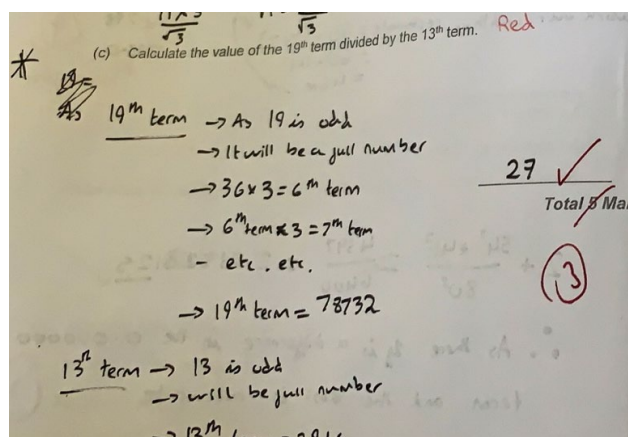 √3 √3
(c) Calculate the value of the 19th term divided by the 13th term. Red
19th term → As 19 is odd
→ It will be a full number
27
→ 36 x 3 = 6th term
Total 5 Ma
→ 6th term x 3 = 7th term
- etc. etc.
3
→ 19th term = 78732
13th term → 13 is odd
→ will be full number
→ 13th